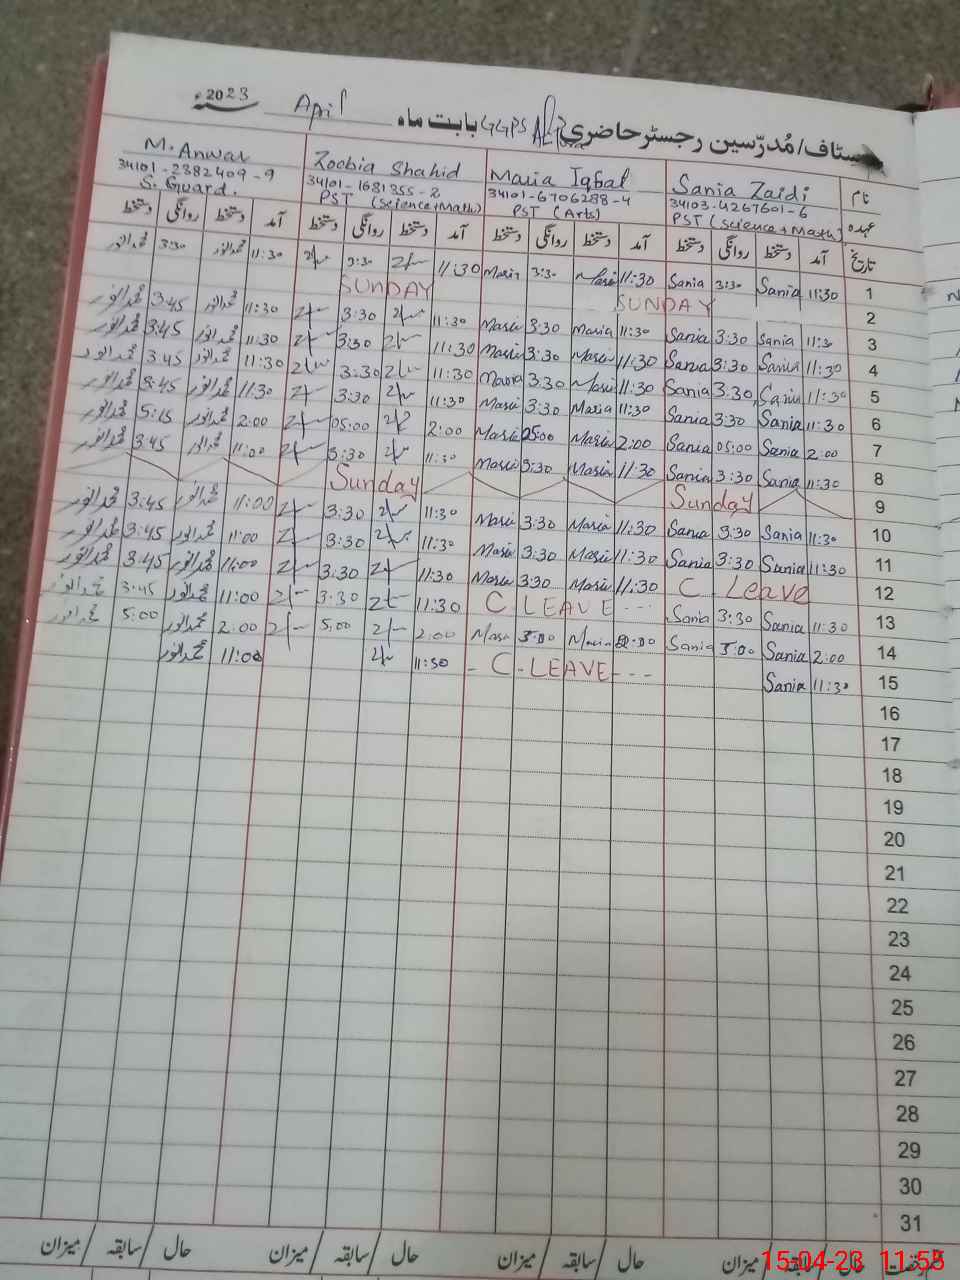 سٹاف/مُدرّسین رجسٹر حاضری GGPS بابت ماہ April 2023ء
نام Sania Zaidi Maria Iqbal Zoobia Shahid M. Anwar
34103-4267601-6 34101-6706288-4 34101-1681355-2 34101-2382409-9
عہدہ PST (Science+Math) PST (Arts) PST (Science+Math) S. Guard.
تاریخ آمد دستخط روانگی دستخط آمد دستخط روانگی دستخط آمد دستخط روانگی دستخط آمد دستخط روانگی دستخط
1 11:30 Sania 3:30 Sania 11:30 Maria 3:30 Maria 11:30 3:30 11:30 محمد انور 3:30 محمد انور
2 SUNDAY SUNDAY
3 11:30 Sania 3:30 Sania 11:30 Maria 3:30 Maria 11:30 3:30 11:30 محمد انور 3:45 محمد انور
4 11:30 Sania 3:30 Sania 11:30 Maria 3:30 Maria 11:30 3:30 11:30 محمد انور 3:45 محمد انور
5 11:30 Sania 3:30 Sania 11:30 Maria 3:30 Maria 11:30 3:30 11:30 محمد انور 3:45 محمد انور
6 11:30 Sania 3:30 Sania 11:30 Maria 3:30 Maria 11:30 3:30 11:30 محمد انور 3:45 محمد انور
7 2:00 Sania 05:00 Sania 2:00 Maria 05:00 Maria 2:00 05:00 2:00 محمد انور 5:15 محمد انور
8 11:30 Sania 3:30 Sania 11:30 Maria 3:30 Maria 11:30 3:30 11:00 محمد انور 3:45 محمد انور
9 Sunday Sunday
10 11:30 Sania 3:30 Sania 11:30 Maria 3:30 Maria 11:30 3:30 11:00 محمد انور 3:45 محمد انور
11 11:30 Sania 3:30 Sania 11:30 Maria 3:30 Maria 11:30 3:30 11:00 محمد انور 3:45 محمد انور
12 C. Leave 11:30 Maria 3:30 Maria 11:30 3:30 11:00 محمد انور 3:45 محمد انور
13 11:30 Sania 3:30 Sania C LEAVE --- 11:30 3:30 11:00 محمد انور 3:45 محمد انور
14 2:00 Sania 5:00 Sania Maria 5:00 Maria 2:00 5:00 2:00 محمد انور 5:00 محمد انور
15 11:30 Sania - C - LEAVE - - - 11:30 11:00 محمد انور
16
17
18
19
20
21
22
23
24
25
26
27
28
29
30
31
حال سابقہ / میزان / حال سابقہ / میزان / حال سابقہ / میزان / حال سابقہ / میزان
15-04-23 11:55